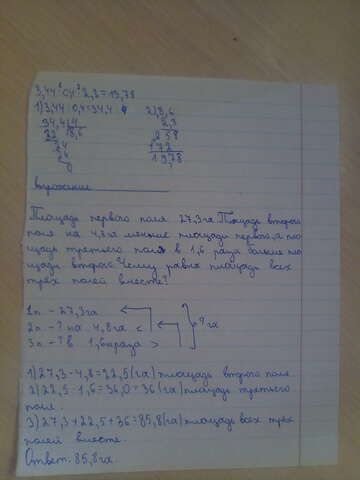 1)3,44:0,4=34,4:4
2)8,6
34,4|4
2,3
32 8,6
258
24
172
24
19,78
0
выражение
Площадь первого поля 27,3га. Площадь второго
поля на 4,8га меньше площади первого, а пло
щадь третьего поля в 1,6 раза больше пло
щади второй. Чему равна площадь всех
трёх полей вместе?
1п - 27,3га
2п - ? на 4,8га <
3п - ? в 1,6раза >
? га
1)27,3-4,8=22,5(га) площадь второго поля.
2)22,5·1,6=36,0=36(га) площадь третьего
поля.
3)27,3+22,5+36=85,8(га) площадь всех трёх
полей вместе.
Ответ: 85,8га.